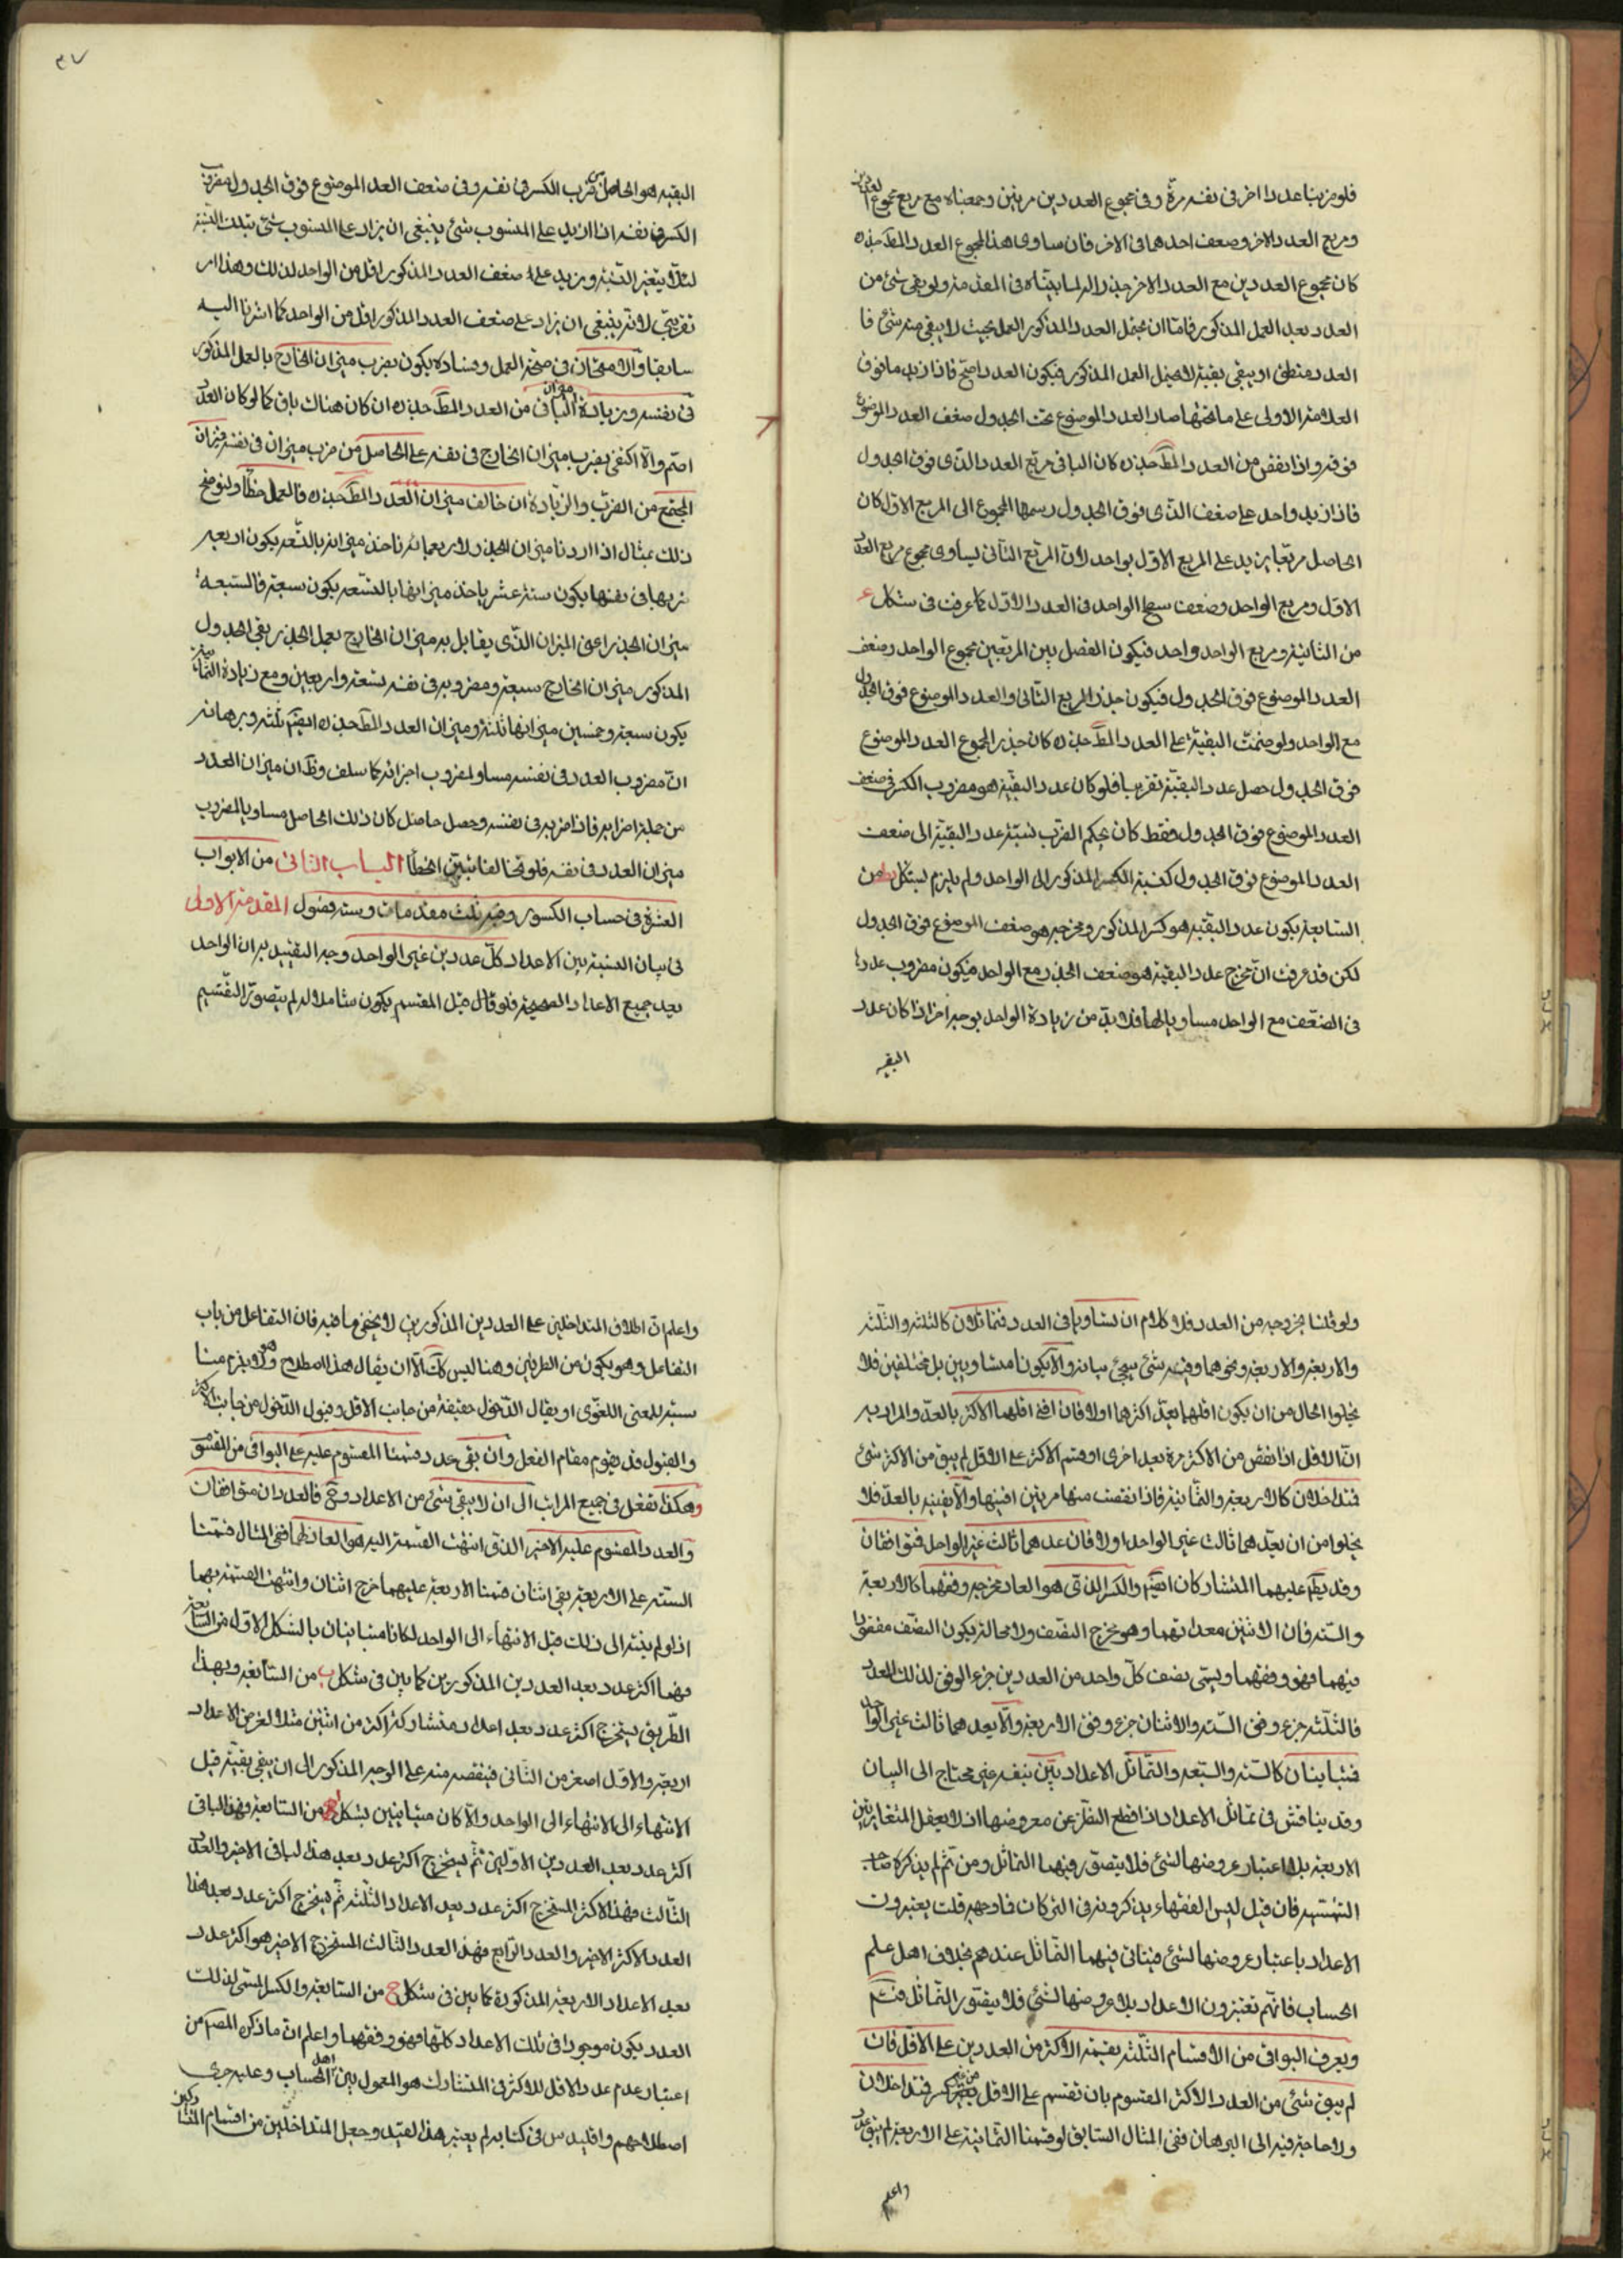 فلو ضربنا عددا اخر فى نفسه مرة و فى مجموع العددين مرتين وجمعناه مع مربع مجموع العددين
ومربع العدد الاخر وضعف احدهما فى الاخر فان ساوى هذا المجموع العدد المط جذره
كان مجموع العددين مع العدد الاخر جذرا له لما بيناه فى المقدمة ولو بقى شئ من
العدد بعد العمل المذكور فاما ان يحتمل العدد المذكور العمل بحيث لا يبقى منه شئ فا
العدد منطق او يبقى بقية لا يحتمل العمل المذكور فيكون العدد اصم فاذا زيد ما فوق
العلامة الاولى على ما تحتها صار العدد الموضوع تحت الجدول ضعف العدد الموضوع
فوقه واذا نقص من العدد المط جذره كان الباقى مربع العدد الذى فوق الجدول
فاذا زيد واحد على ضعف الذى فوق الجدول رسمها المجموع الى المربع الاول كان
الحاصل مربعا يزيد على المربع الاول بواحد لان المربع الثانى يساوى مجموع مربع العدد
الاول ومربع الواحد وضعف سطح الواحد فى العدد الاول كما عرفت فى شكل
من الثانية ومربع الواحد واحد فيكون الفضل بين المربعين مجموع الواحد وضعف
العدد الموضوع فوق الجدول فيكون جذر المربع الثانى والعدد الموضوع فوق الجدول
مع الواحد ولو ضمت البقية على العدد المط جذره كان جذر المجموع العدد الموضوع
فوق الجدول حصل عدد البقية تقريبا فلو كان عدد البقية هو مضروب الكسر فى ضعف
العدد الموضوع فوق الجدول فقط كان بحكم الضرب نسبة عدد البقية الى ضعف
العدد الموضوع فوق الجدول كنسبة الكسر المذكور الى الواحد ولم يلزم لشكل من
السابعة يكون عدد البقية هو كسر المذكور ومخرجه هو ضعف الموضوع فوق الجدول
لكن قد عرفت ان مخرج عدد البقية هو ضعف الجذر مع الواحد فيكون مضروب عددها
فى الضعف مع الواحد مساويا لها فلا بد من زيادة الواحد بوجه اخر اذا كان عدد
البقية
٣٧
البقية هو الحاصل من ضرب الكسر فى نفسه و فى ضعف العدد الموضوع فوق الجدول مضروب
الكسر فى نفسه اذا زيد على المنسوب شئ ينبغى ان يزاد على المنسوب شئ بتلك النسبة
لئلا يتغير النسبة و زيد على ضعف العدد المذكور اقل من الواحد لذلك وهذا امر
تقريبى لانه ينبغى ان يزاد على ضعف العدد المذكور اقل من الواحد كما اشرنا اليه
سابقا والامتحان فى صحة العمل وفساده يكون بضرب ميزان الخارج بالعمل المذكور
فى نفسه وزيادة ميزان الباقى من العدد المط جذره ان كان هناك باق كما لو كان العدد
اصم والا اكتفى بضرب ميزان الخارج فى نفسه على الحاصل من ضرب ميزان فى نفسه فميزان
المجتمع من الضرب والزيادة ان خالف ميزان العدد المط جذره فالعمل خطأ ولنوضح
ذلك بمثال اذا اردنا ميزان الجذر ولاربعمائة ناخذ ميزانه بالتسعه يكون اربعه
نربها فى نفسها يكون ستة عشر ياخذ ميزانها بالتسعه يكون سبعة فالسبعة
ميزان الجذر اعنى الميزان الذى يقابل به ميزان الخارج بعمل الجذر يبقى الجدول
المذكور ميزان الخارج سبعة ومضروبه فى نفسه تسعة واربعين ومع زيادة الثمانية
يكون سبعة وخمسين ميزانها ثلثة وميزان العدد المط جذره ايضا ثلثة وبرهانه
ان مضروب العدد فى نفسه مساو لمضروب اجزائه كما سلف وظ ان ميزان العدد
من جملة اجزائه فاذا ضربه فى نفسه وحصل حاصل كان ذلك الحاصل مساويا لمضروب
ميزان العدد فى نفسه فلو تخالفا تبين الخطأ الباب الثانى من الابواب
العشرة فى حساب الكسور وفيه ثلث مقدمات وستة فصول المقدمة الاولى
فى بيان النسبة بين الاعداد كل عددين غير الواحد وجه التقييد به ان الواحد
يعد جميع الاعداد الصحيحة فلو قال قبل المقسم يكون شاملا له لم يتصور التقسيم
ولو قلنا بخروجه من العدد فلا كلام ان تساويا فى العدد فمتماثلان كالثلثة والثلثة
والاربعة والاربعة ونحوهما وفيه شئ سيجئ بيانه والا يكونا متساويين بل مختلفين فلا
يخلوا الحال من ان يكون اقلهما يعد اكثرهما اولا فان افنى اقلهما الاكثر بالعد والمراد به
ان الاقل اذا نقص من الاكثر مرة بعد اخرى او قسم الاكثر على الاقل لم يبق من الاكثر شئ
فمتداخلان كالاربعة والثمانية فاذا نقصت منها مرتين افنيتها والا يفنيه بالعد فلا
يخلوا من ان يعدهما ثالث غير الواحد اولا فان عدهما ثالث غير الواحد فمتوافقان
وقد يطلق عليهما المتشاركان ايضا والكسر الذى هو العاد مخرجه وفقهما كالاربعة
والستة فان الاثنين معدانهما وهو مخرج النصف ولا محالة يكون النصف متفقا
فيهما فهو وفقهما ويسمى نصف كل واحد من العددين جزء الوفق لذلك العدد
فالثلثة جزء وفق الستة والاثنان جزء وفق الاربعة والا يعدهما ثالث غير الواحد
فمتباينان كالستة والسبعة والتماثل الاعداد بين بنفسه غير محتاج الى البيان
وقد يناقش فى تماثل الاعداد اذا قطع النظر عن معروضها اذ لا يعقل المتغايرتين
الاربعة بلا اعتبار عروضها لشئ فلا يتصور فيهما التماثل ومن ثم لم يذكره صاحب
الشمسية فان قيل ليس الفقهاء يذكرونه فى التركات فما وجهه قلت يعتبرون
الاعداد باعتبار عروضها لشئ فيتاتى فيهما التماثل عندهم بخلاف اهل علم
الحساب فانهم يعتبرون الاعداد بلا عروضها لشئ فلا يتصور التماثل
ويعرف البواقى من الاقسام الثلثة بقسمة الاكثر من العددين على الاقل فان
لم يبق شئ من العدد الاكثر المقسوم بان تقسم على الاقل من غير كسر فمتداخلان
ولا حاجة فيه الى البرهان ففى المثال السابق لو قسمنا الثمانية على الاربعة لم يبق عدد
واعلم
واعلم ان اطلاق المتداخلين على العددين المذكورين لا يخفى ما فيه فان التفاعل من باب
التفاعل وهو يكون من الطرفين وهنا ليس كك الا ان يقال هذا اصطلاح ولا يلزم منا
سبة للمعنى اللغوى او يقال الدخول حقيقة من جانب الاقل وقبول الدخول من جانب الاكثر
والقبول قد يقوم مقام الفعل وان بقى عدد قسمنا المقسوم عليه على البواقى من المقسوم
وهكذا نفعل فى جميع المراتب الى ان لا يبقى شئ من الاعداد وح فالعددان متوافقان
والعدد المقسوم عليه الاخير الذى انتهت القسمة اليه هو العاد لهما ففى المثال قسمنا
الستة على الاربعة بقى اثنان قسمنا الاربعة عليهما خرج اثنان وانتهت القسمة بهما
اذ لو لم ينته الى ذلك قبل الانتهاء الى الواحد لكانا متباينان بالشكل الاول من السابعة
فهما اكثر عدد يعد العددين المذكورين كما بين فى شكل ب من السابعة وبهذا
الطريق يستخرج اكثر عدد يعد اعداد متشاركة اكثر من اثنين مثلا لغرض الاعداد
اربعة والاول اصغر من الثانى فينقصه منه على الوجه المذكور الى ان يبقى بقية قبل
الانتهاء الى الانتهاء الى الواحد والا كان متباينين بشكل من السابعة وهو الباقى
اكثر عدد يعد العددين الاولين ثم يستخرج اكثر عدد يعد هذا الباقى الاخير والعدد
الثالث فهذا الاكثر المستخرج اكثر عدد يعد الاعداد الثلثة ثم يستخرج اكثر عدد يعد هذا
العدد الاكثر الاخير والعدد الرابع فهذا العدد الثالث المستخرج الاخير هو اكثر عدد
يعد الاعداد الاربعة المذكورة كما بين فى شكل ج من السابعة والكسر المسمى لذلك
العدد يكون موجودا فى تلك الاعداد كلها فهو وفقهما واعلم ان ما ذكره المصم من
اعتبار عدم عدد الاقل للاكثر فى المتشارك هو المعمول بين اهل الحساب وعليه جرى
اصطلاحهم واقليدس فى كتابه لم يعتبر هذا القيد وجعل المتداخلين من اقسام المتشاركين